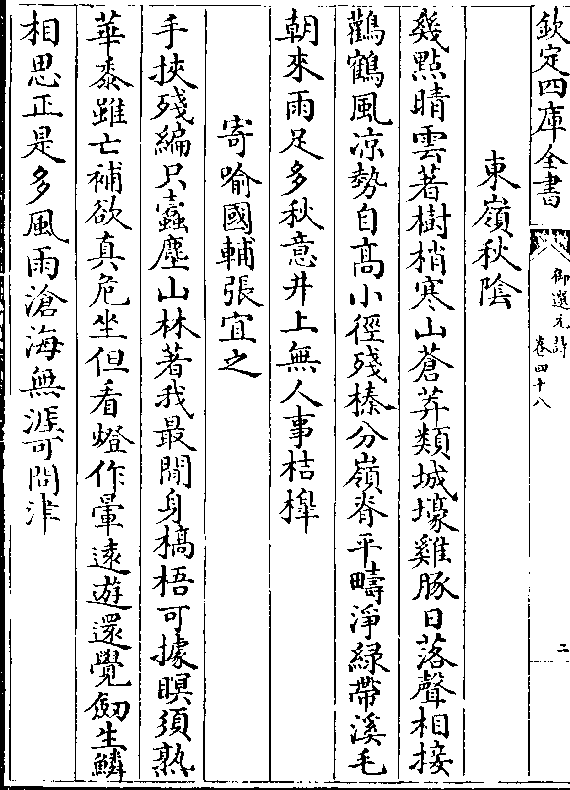 欽定四庫全書
御選元詩
卷四十八
二
東嶺秋陰
幾點晴雲著樹梢寒山蒼莽類城壕雞豚日落聲相接
鸛鶴風凉勢自高小徑殘榛分嶺脊平疇淨緑帶溪毛
朝來雨足多秋意井上無人事桔槹
寄喻國輔張宜之
手挾殘編只蠹塵山林著我最閒身槁梧可據瞑須熟
華黍雖亡補欲真危坐但看燈作暈遠遊還覺劒生鱗
相思正是多風雨滄海無涯可問津